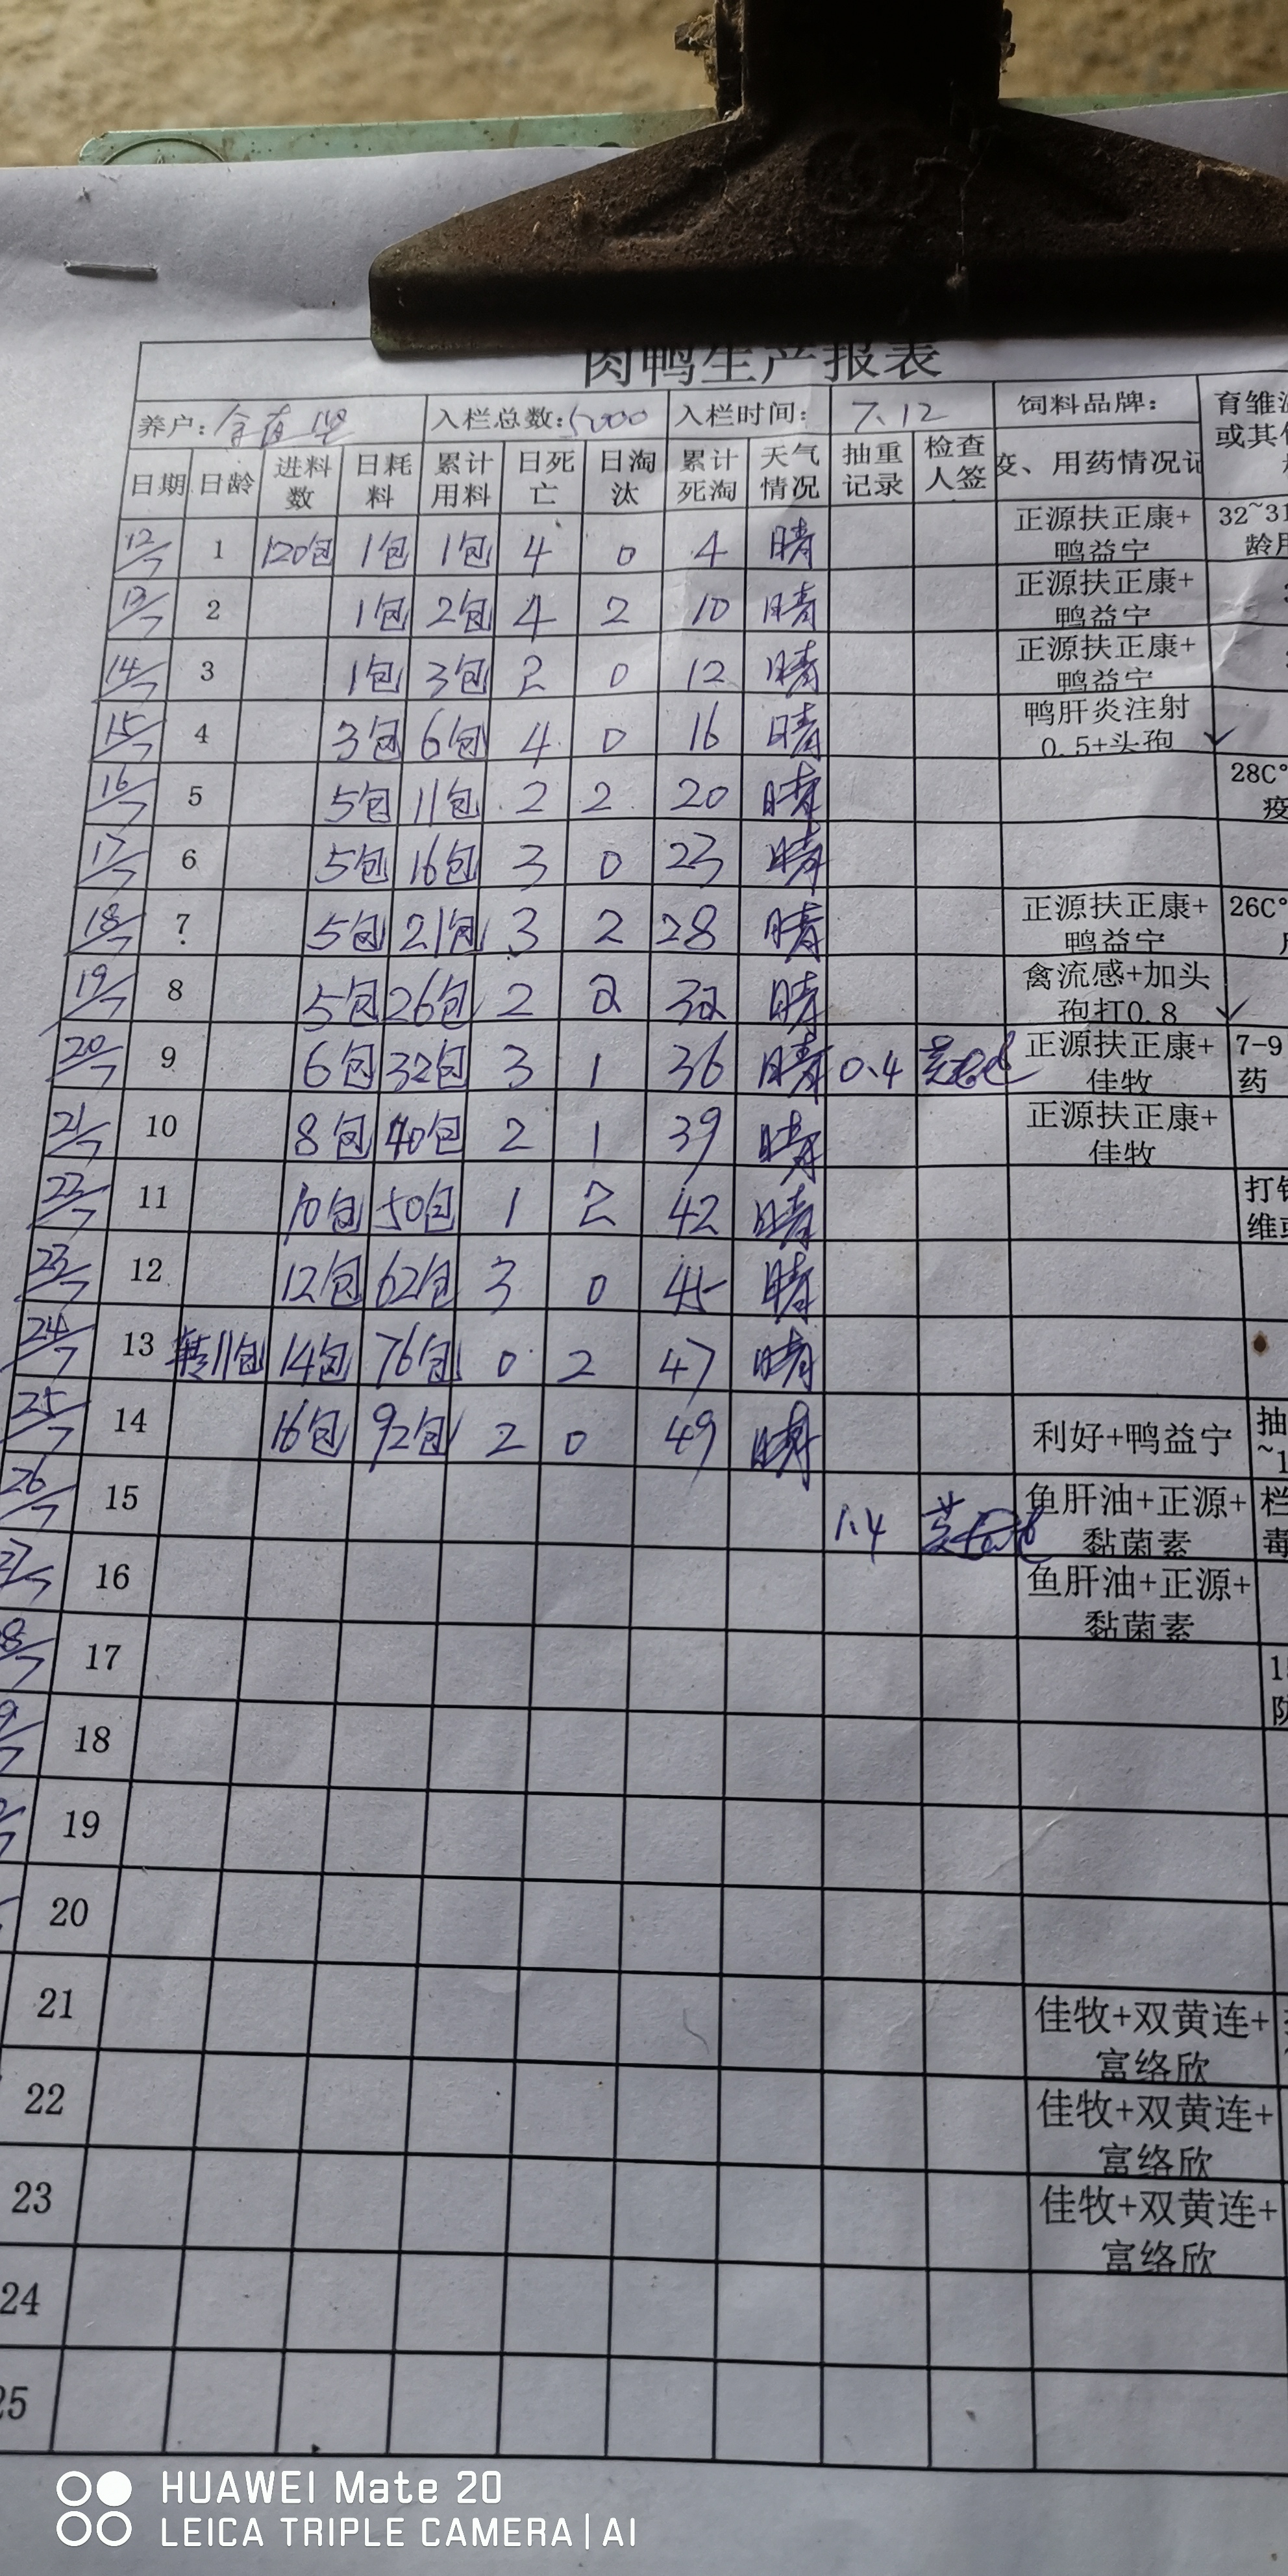 肉鸭生产报表
养户: 入栏总数:5000 入栏时间: 7.12 饲料品牌: 育雏
日期 日龄 进料数 日耗料 累计用料 日死亡 日淘汰 累计死淘 天气情况 抽重记录 检查人签 疫、用药情况记 或其
12/7 1 120包 1包 1包 4 0 4 晴 正源扶正康+鸭益宁 32~31 龄
13/7 2 1包 2包 4 2 10 晴 正源扶正康+鸭益宁
14/7 3 1包 3包 2 0 12 晴 正源扶正康+鸭益宁
15/7 4 3包 6包 4 0 16 晴 鸭肝炎注射0.5+头孢 ✓
16/7 5 5包 11包 2 2 20 晴 28C° 疫
17/7 6 5包 16包 3 0 23 晴
18/7 7 5包 21包 3 2 28 晴 正源扶正康+鸭益宁 26C°
19/7 8 5包 26包 2 2 32 晴 禽流感+加头孢打0.8 ✓
20/7 9 6包 32包 3 1 36 晴 0.4 正源扶正康+佳牧 7-9 药
21/7 10 8包 40包 2 1 39 晴 正源扶正康+佳牧
22/7 11 10包 50包 1 2 42 晴 打 维
23/7 12 12包 62包 3 0 45 晴
24/7 13 转11包 14包 76包 0 2 47 晴
25/7 14 16包 92包 2 0 49 晴 利好+鸭益宁 抽 ~1
26/7 15 1.4 鱼肝油+正源+黏菌素 栏 毒
27/7 16 鱼肝油+正源+黏菌素
8/7 17 1 防
9/7 18
19
20
21 佳牧+双黄连+富络欣
22 佳牧+双黄连+富络欣
23 佳牧+双黄连+富络欣
24
25
HUAWEI Mate 20
LEICA TRIPLE CAMERA | AI